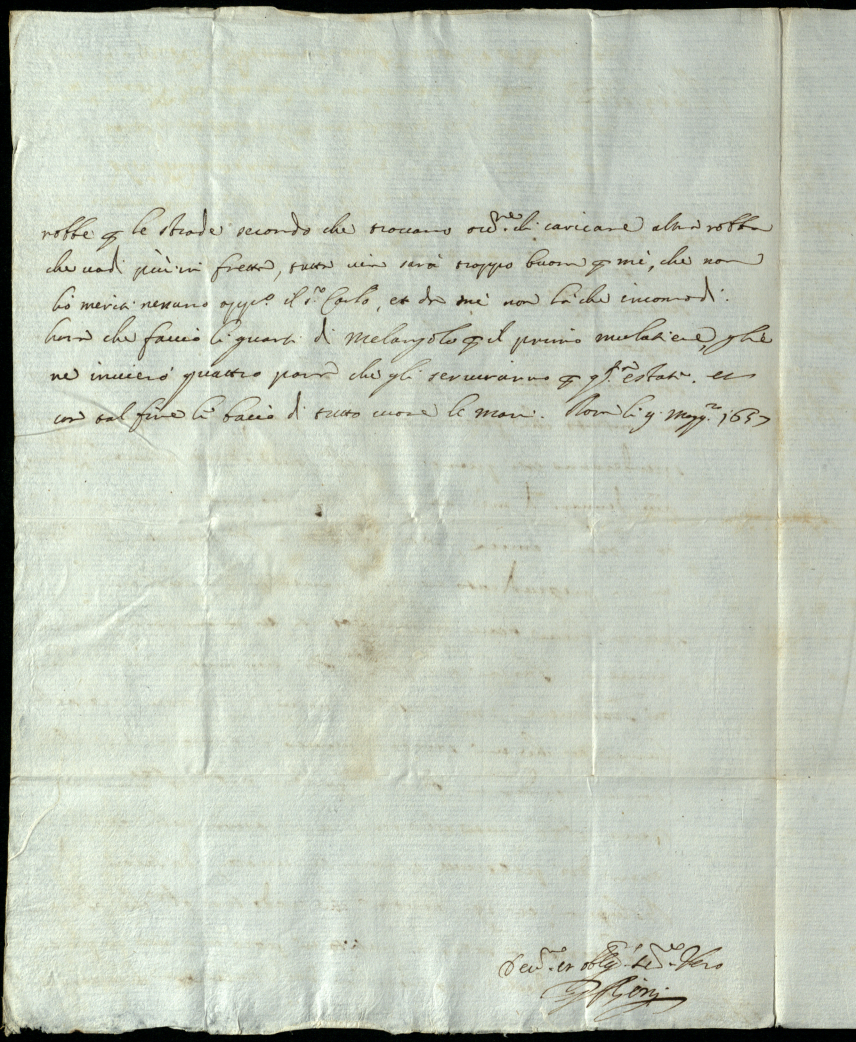 robbe p le strade secondo che trovano ord.ne di caricare altra robba
che vadi più in fretta, tutta via sarà troppo buona p me, che non
hò meriti nessuno app.o il s.r Carlo, et da me non hà che incomodi.
hora che faccio li quarti di Melangolo p il primo mulatiere, gliè
ne invierò quattro para che gli serviranno p q.sta estate. et
con tal fine li bacio di tutto cuore le mani. Roma li 9 Magg.o 1657
Dev.mo et obblig.mo Ser.re Vero